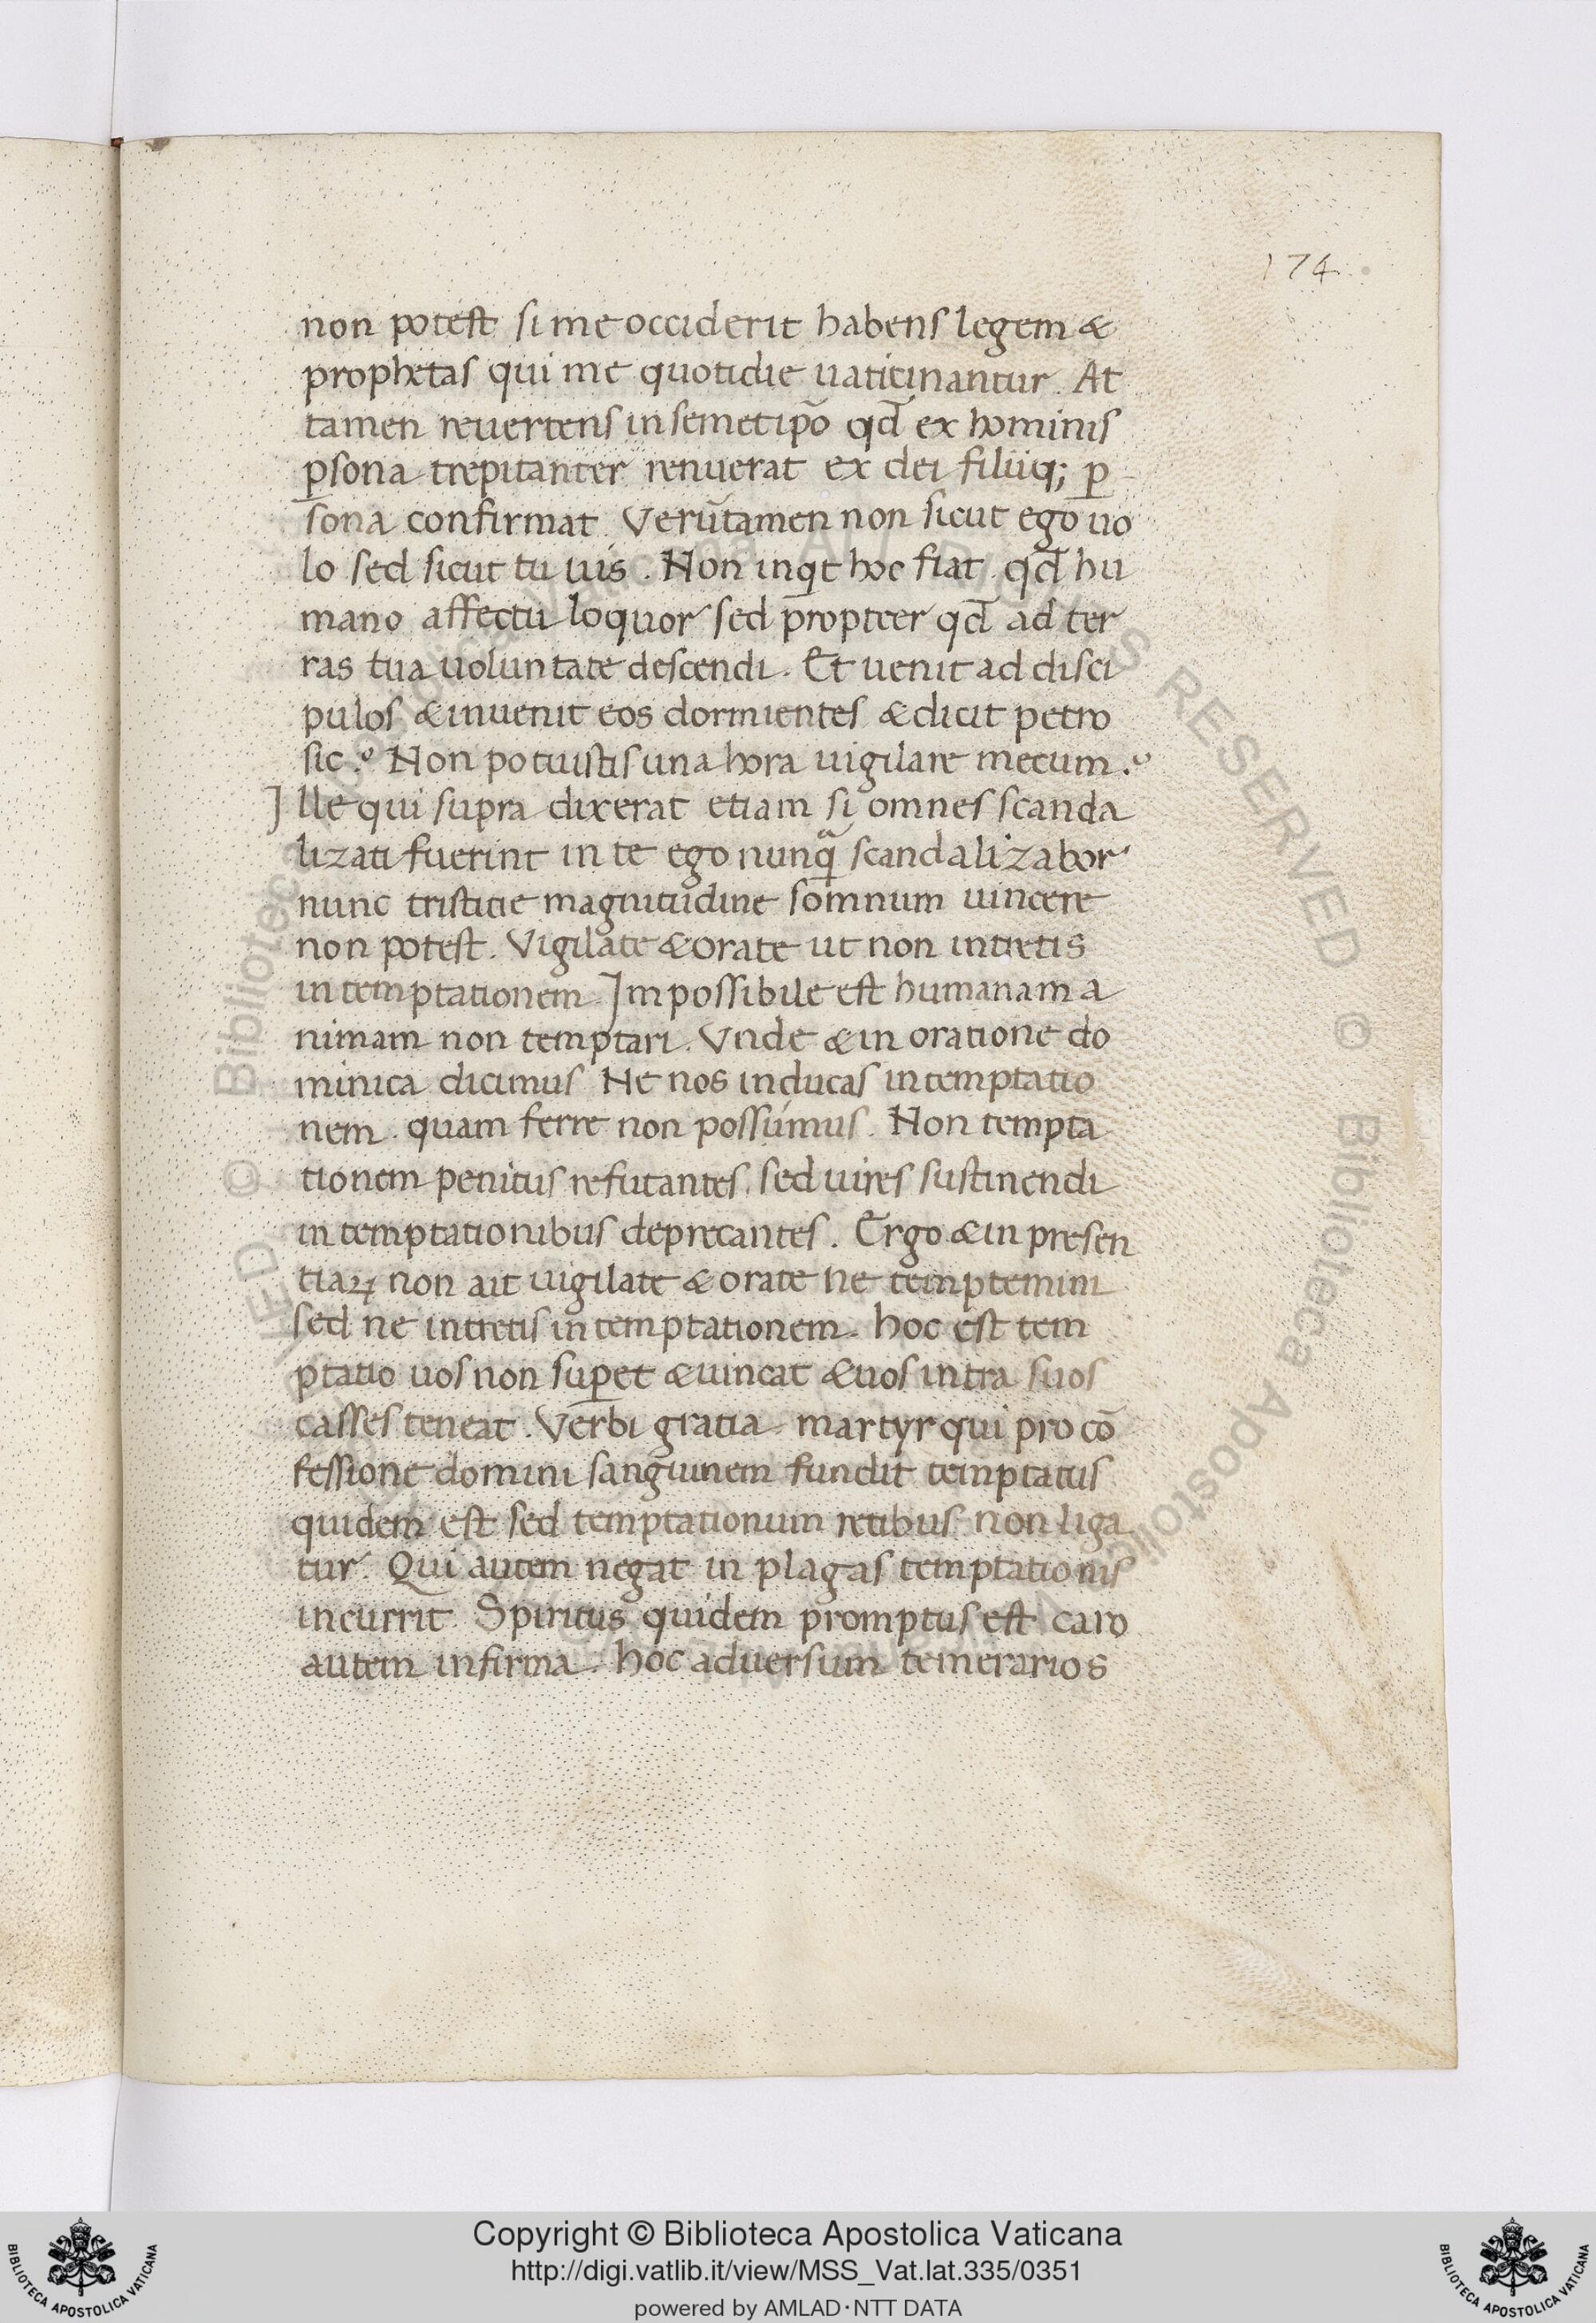 174
non potest si me occiderit habens legem &
prophetas qui me quotidie uaticinantur. At
tamen reuertens in semetip̄o qđ ex hominis
ꝑsona trepitanter renuerat ex dei filiiq; ꝑ
sona confirmat. Verūtamen non sicut ego uo
lo sed sicut tu uis. Non inqͥt hoc fiat. qđ hu
mano affectu loquor sed propteer qđ ad ter
ras tua uoluntate descendi. Et uenit ad disci
pulos & inuenit eos dormientes & dicit petro
sic? Non potuistis una hora uigilare mecum?
Ille qui supra dixerat etiam si omnes scanda
lizati fuerint in te ego nunqͣ scandalizabor
nunc tristitie magnitudine somnum uincere
non potest. Vigilate & orate ut non intretis
in temptationem. Impossibile est humanam a
nimam non temptari. Vnde & in oratione do
minica dicimus Ne nos inducas in temptatio
nem. quam ferre non possúmus. Non tempta
tionem penitus refutantes. sed uires sustinendi
in temptationibus deprecantes. Ergo & in presen
tiaꝝ non ait uigilate & orate ne temptemini
sed ne intretis in temptationem. hoc est tem
ptatio uos non suꝑet & uincat & uos intra suos
casses teneat. Verbi gratia martyr qui pro cō
fessione domini sanguinem fundit temptatus
quidem est sed temptationum retibus non liga
tur. Qui autem negat in plagas temptationis
incurrit. Spiritus quidem promptus est caro
autem infirma. hoc aduersum temerarios
Copyright © Biblioteca Apostolica Vaticana
http://digi.vatlib.it/view/MSS_Vat.lat.335/0351
powered by AMLAD·NTT DATA
BIBLIOTECA APOSTOLICA VATICANA
BIBLIOTECA APOSTOLICA VATICANA